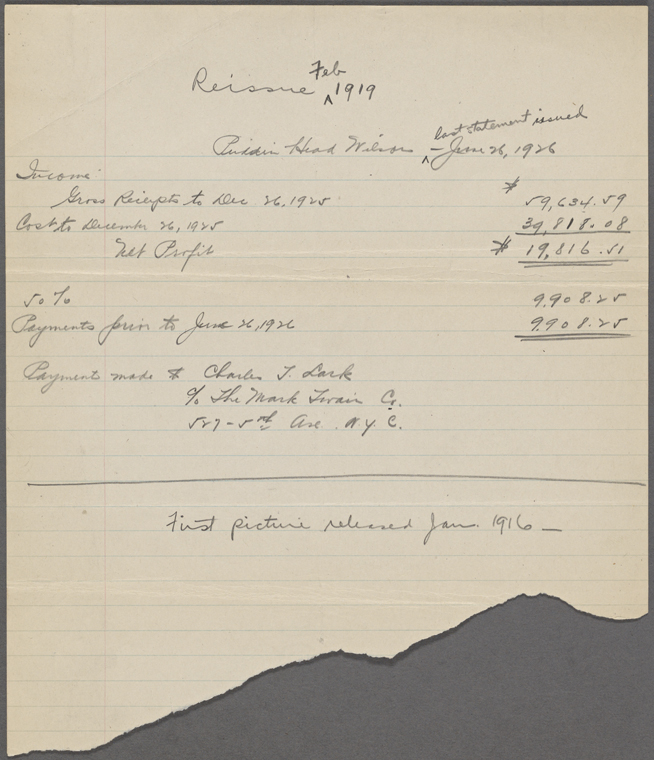 Reissue ^ Feb 1919
Puddin Head Wilson ^ last statement issued – June 26, 1926
Income:
Gross Receipts to Dec. 26, 1925 $ 59,634.59
Cost to December 26, 1925 39,818.08
Net Profit $ 19,816.51
50% 9908.25
Payments prior to June 26, 1926 9908.25
Payments made to Charles T. Lark
c/o The Mark Twain Co.
527-5th Ave. N.Y.C.
First picture released Jan. 1916 –